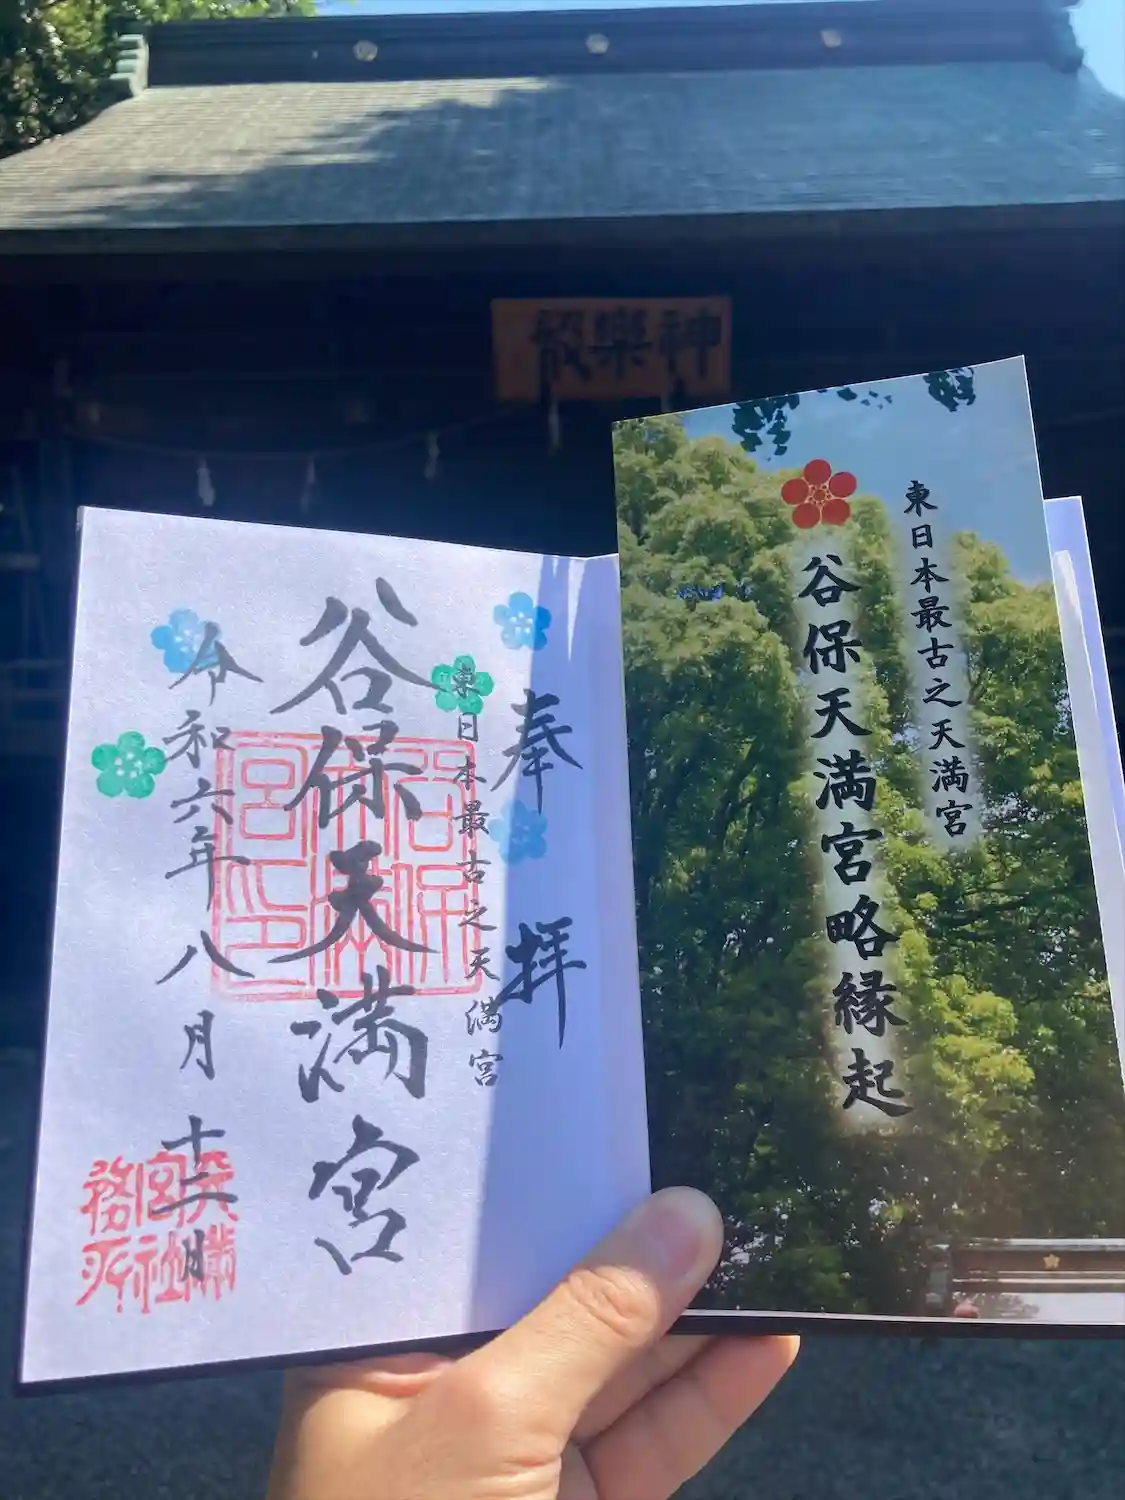 神樂殿
東日本最古之天満宮
谷保天満宮略縁起
奉拝
東日本最古之天満宮
谷保天満宮
令和六年八月十二日
谷保天満宮印